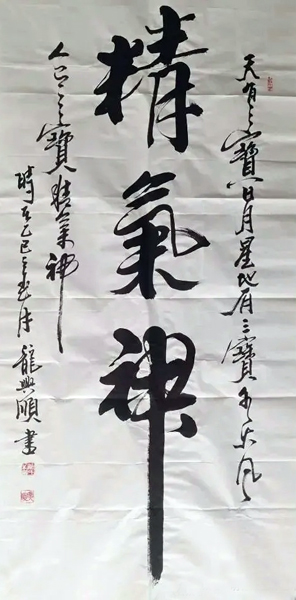 天有三寶日月星地有三寶水火風
精氣神
人三寶精氣神
時在乙巳月龍興順書